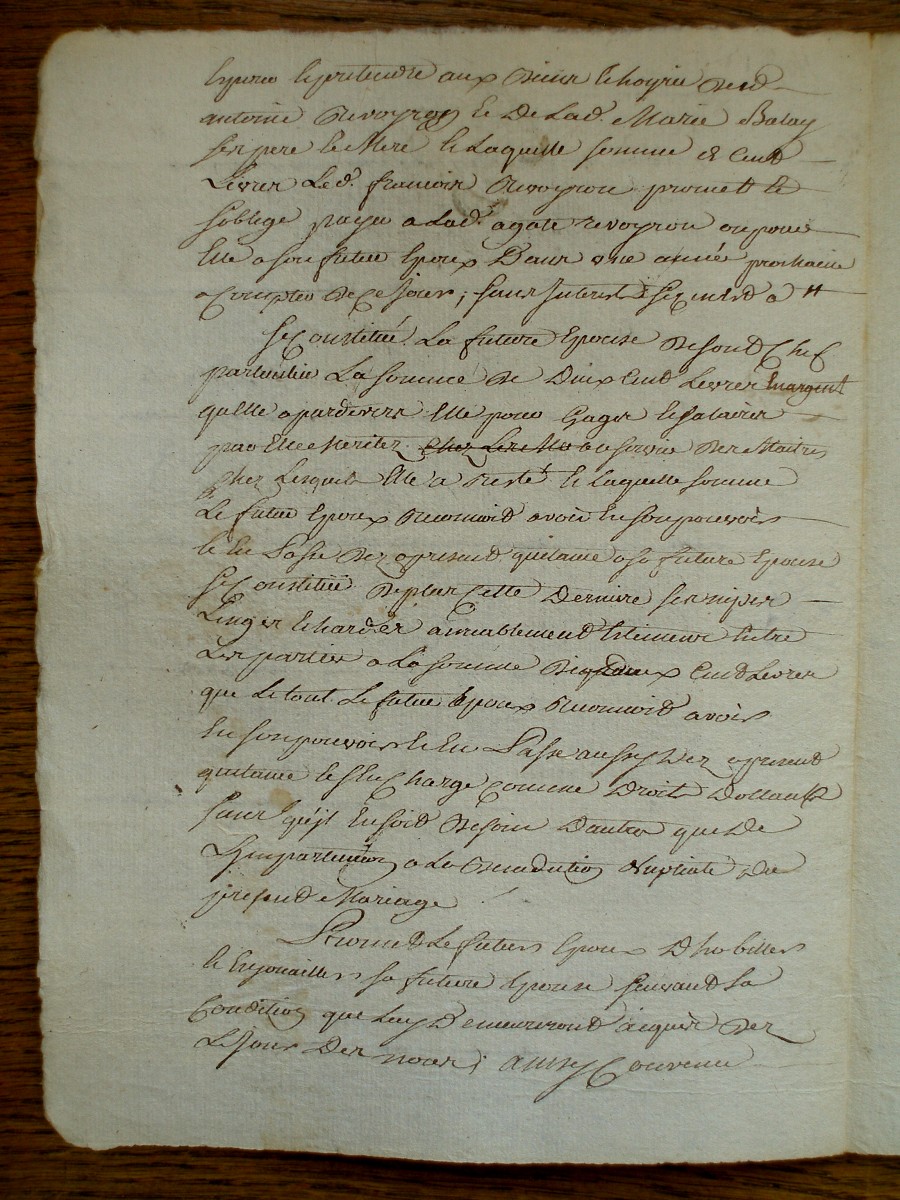 Espere et pretendre aux Biens et hoyrie dud.
antoine Revoyron et De Lad. Marie Balay
ses pere et Mere et Laquelle somme de Cent
Livres Led. francois Revoyron promet et
soblige payer a Lad. agate revoyron ou pour
Elle a son futur Epoux Dans une année prochaine
a Compter de Ce Jour; sans Interest
se Constitue La future Epouse de son Chef
particulier La somme de Deux Cent Livres En argent
quelle a pardevers Elle pour Gages et salaires
par Elle Merités Chez Les au service des Maitres
Chez Lesquels Elle a resté et Laquelle somme
Le futur Epoux reconnoit avoir En son pouvoir
et En Passe des a present quitance a sa future Epouse
se Constitue de plus Cette Derniere ses nipes
Linges et hardes amiablement Estimées Entre
Les parties a La somme de Cent Livres
que Le tout Le futur Epoux reconnoit avoir
En son pouvoir et En Passe aussy Dez a present
quitance et s'En Charge Comme Droits Dottaux
sans qu'il En soit Besoin Dautre que De
L'impartition a La Benediction Nuptiale Du
present Mariage
Promet Le futur Epoux D'habiller
et Enjouailler sa future Epouse suivant sa
Condition que Luy Demeureront acquis Dez
Le Jour Des noces; aussy Convenu